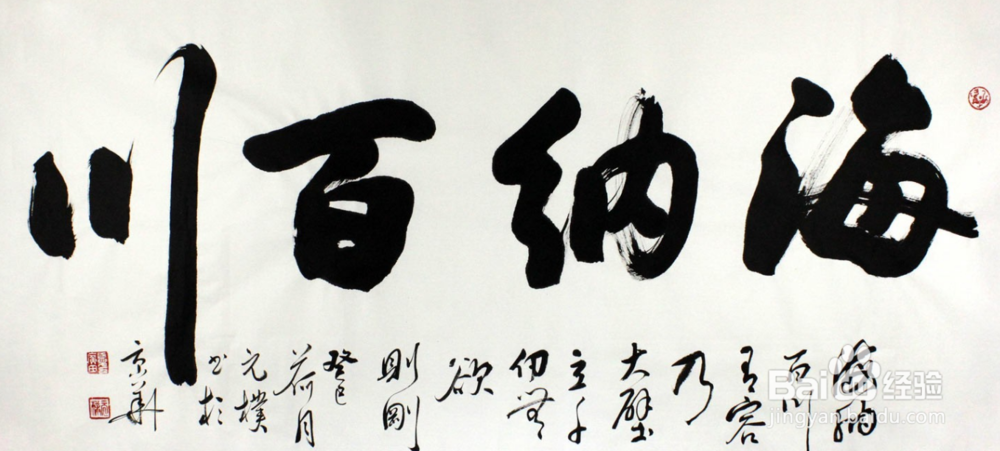 海納百川
海納
百川
有容
乃
大壁
立千
仞無
欲
則剛
癸巳
荷月
元樸
书於
京華
Bai 经验
jingyan.baidu.com